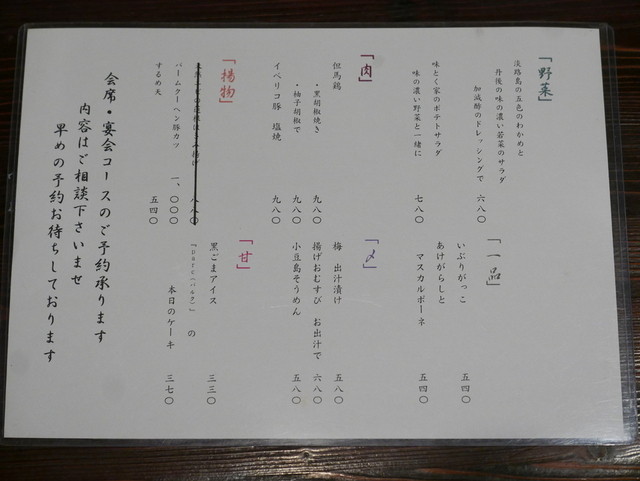 「野菜」
淡路島の五色のわかめと
丹後の味の濃い若菜のサラダ
加減酢のドレッシングで 六八〇
味とく家のポテトサラダ
味の濃い野菜と一緒に 七八〇
「肉」
但馬鶏
・黒胡椒焼き 九八〇
・柚子胡椒で 九八〇
イベリコ豚 塩焼 九八〇
「揚物」
八八〇
バームクーヘン豚カツ 一、〇〇〇
するめ天 五四〇
「一品」
いぶりがっこ 五四〇
あけがらしと
マスカルポーネ 五四〇
「〆」
梅 出汁漬け 五八〇
揚げおむすび お出汁で 六八〇
小豆島そうめん 五八〇
「甘」
黒ごまアイス 三三〇
「parc(パルク)」の
本日のケーキ 三七〇
会席・宴会コースのご予約承ります
内容はご相談下さいませ
早めの予約お待ちしております